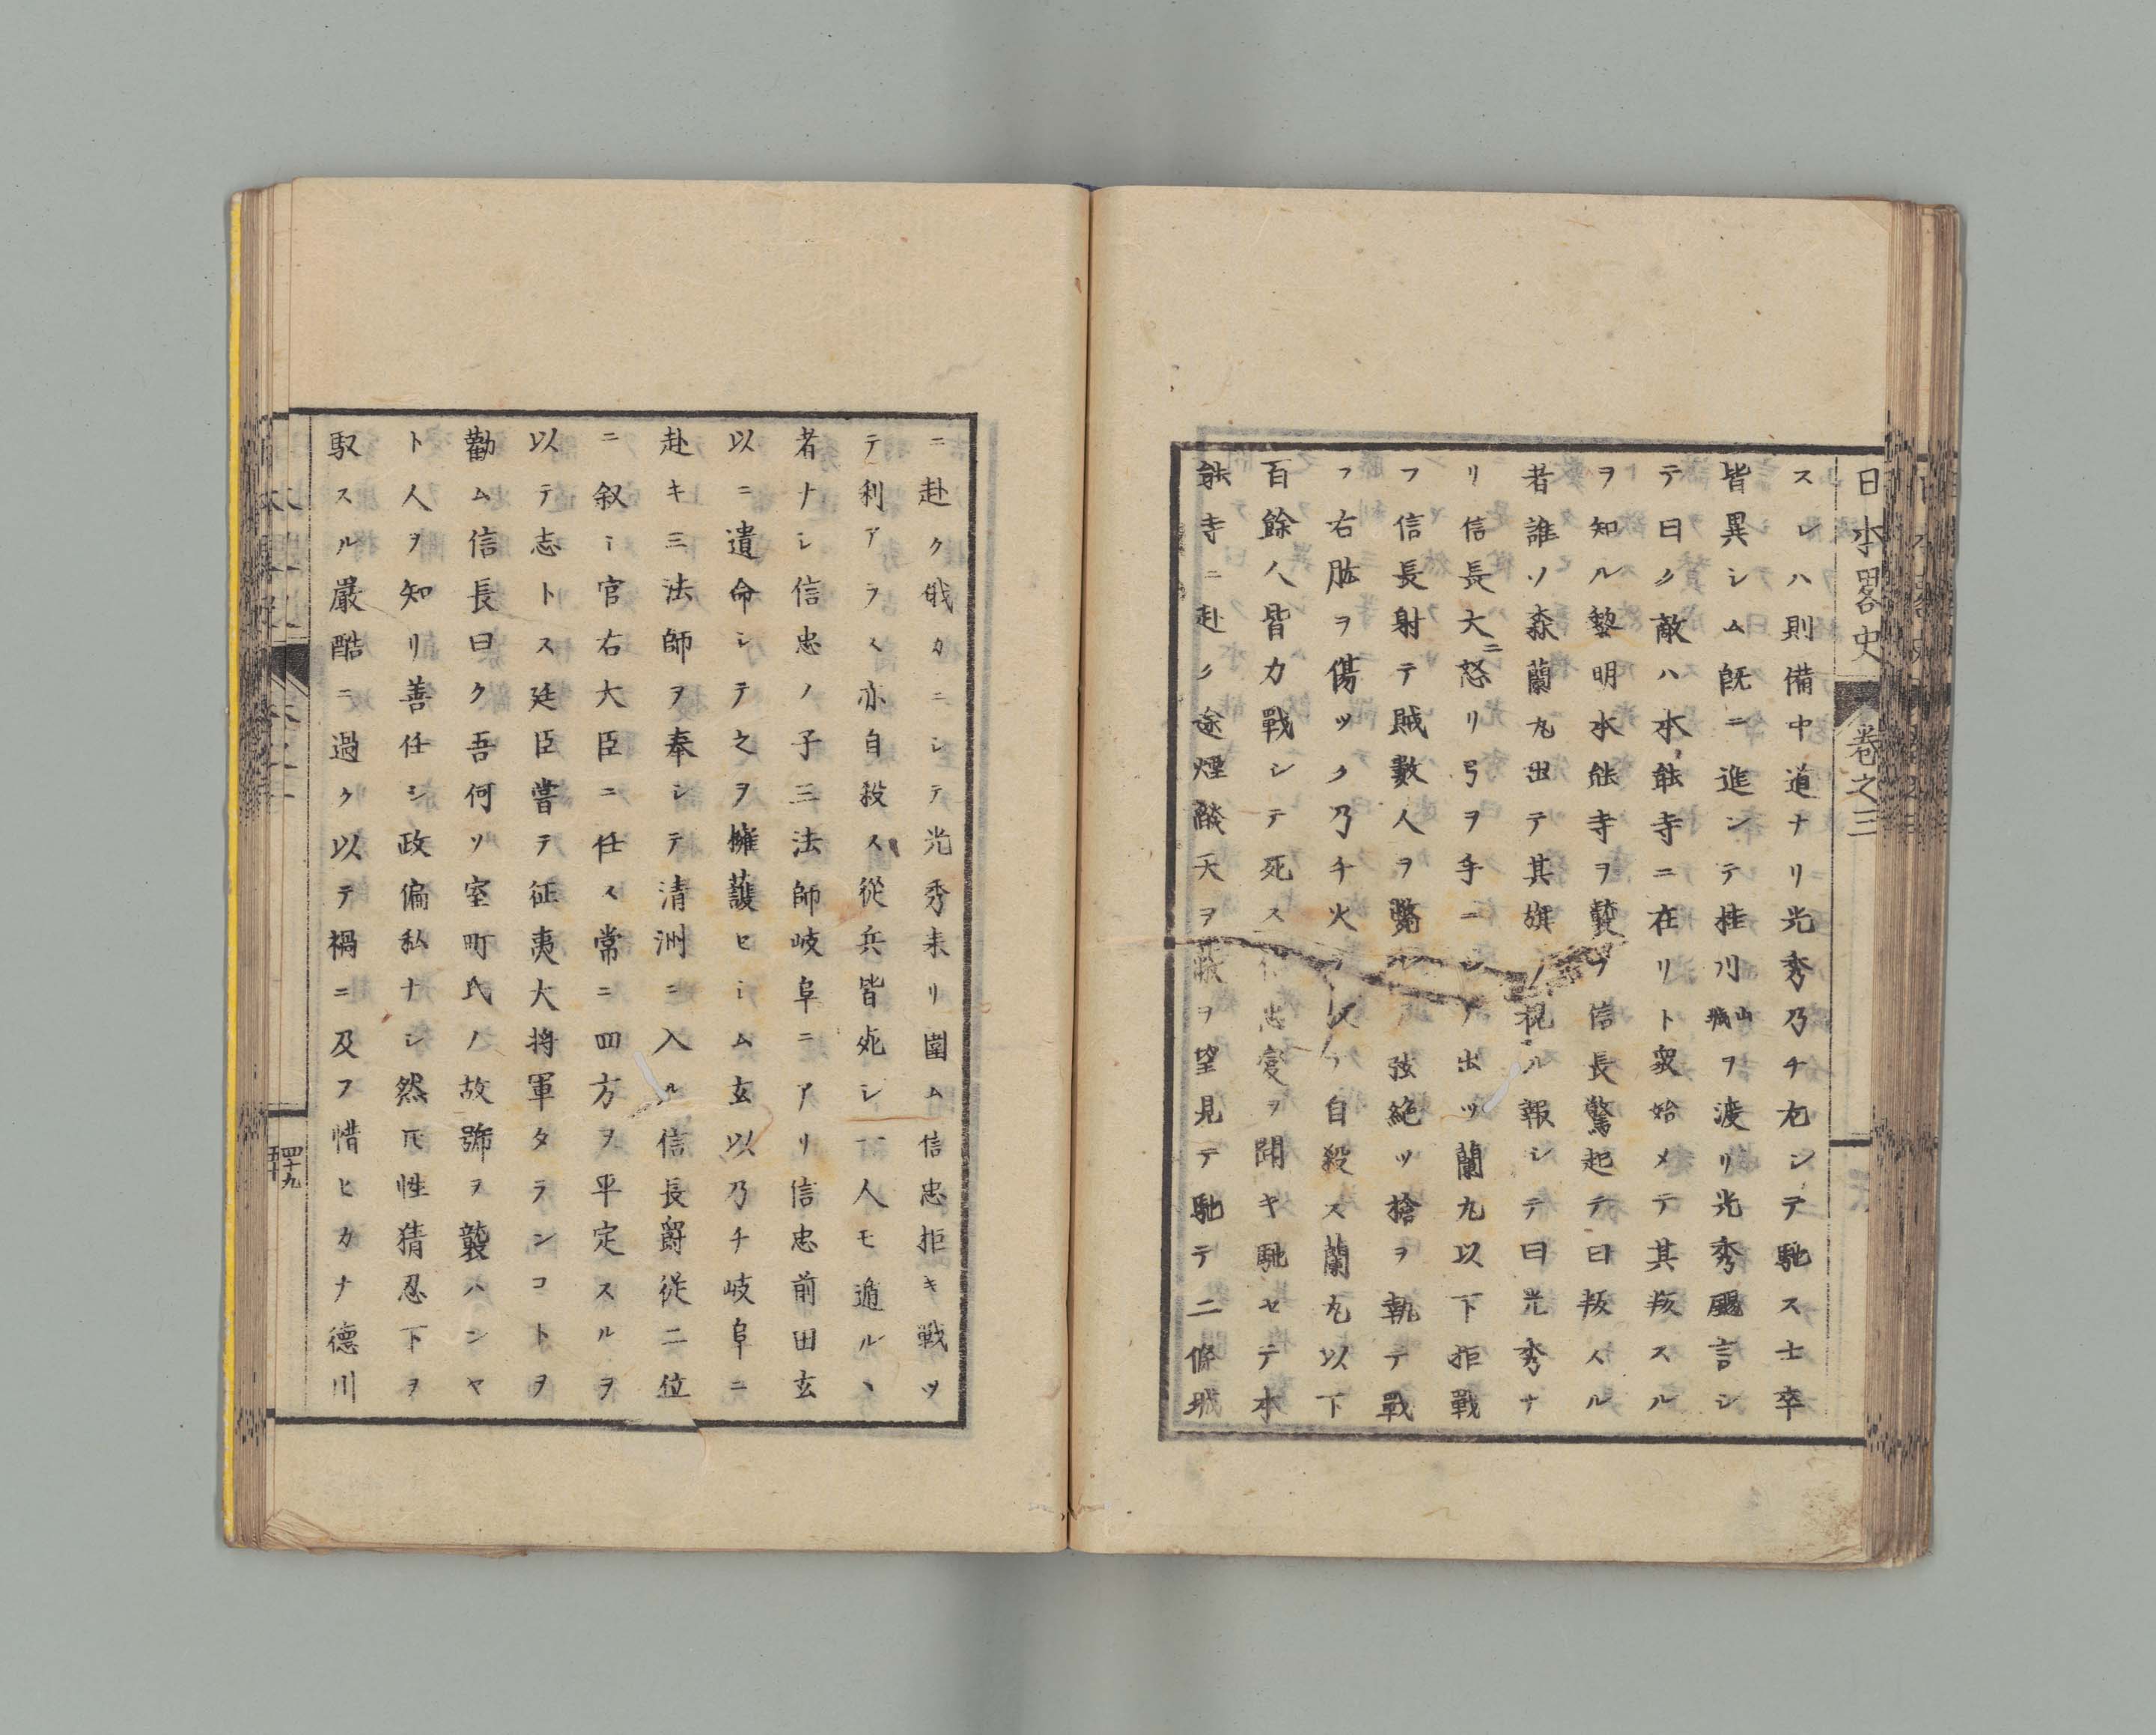 日本畧史 卷之三
スレハ則備中道ナリ光秀乃チ左シテ馳ス士卒
皆異シム既ニ進ンテ桂川山城ヲ渡リ光秀颺言シ
テ曰ク敵ハ本能寺ニ在リト衆始メテ其叛スル
ヲ知ル黎明本能寺ヲ襲フ信長驚起テ曰叛スル
者誰ソ森蘭丸出テ其旗ヲ視ル報シテ曰光秀ナ
リ信長大ニ怒リ弓ヲ手ニシテ出ツ蘭丸以下拒戰
フ信長射テ賊數人ヲ斃ル弦絶ツ槍ヲ執テ戰
フ右肱ヲ傷ツク乃チ火ヲ自殺ス蘭丸以下
百餘人皆力戰シテ死ス信忠變ヲ聞キ馳セテ本
能寺ニ赴ク途煙燄天ヲ望見テ馳テ二條城
ニ赴ク俄カニシテ光秀来リ圍ム信忠拒キ戰ツ
テ利アラス亦自殺ス從兵皆死シ一人モ遁ル丶
者ナシ信忠ノ子三法師岐阜ニアリ信忠前田玄
以ニ遺命シテ之ヲ擁護セシム玄以乃チ岐阜ニ
赴キ三法師ヲ奉シテ清洲ニ入ル信長爵從二位
ニ叙シ官右大臣ニ任ス常ニ四方ヲ平定スルヲ
以テ志トス廷臣嘗テ征夷大将軍タランコトヲ
勸ム信長曰ク吾何ソ室町氏ノ故號ヲ襲ハンヤ
ト人ヲ知リ善任シ政偏私ナシ然𪜈性猜忍下ヲ
馭スル嚴酷ニ過ク以テ禍ニ及フ惜ヒカナ德川
四十九